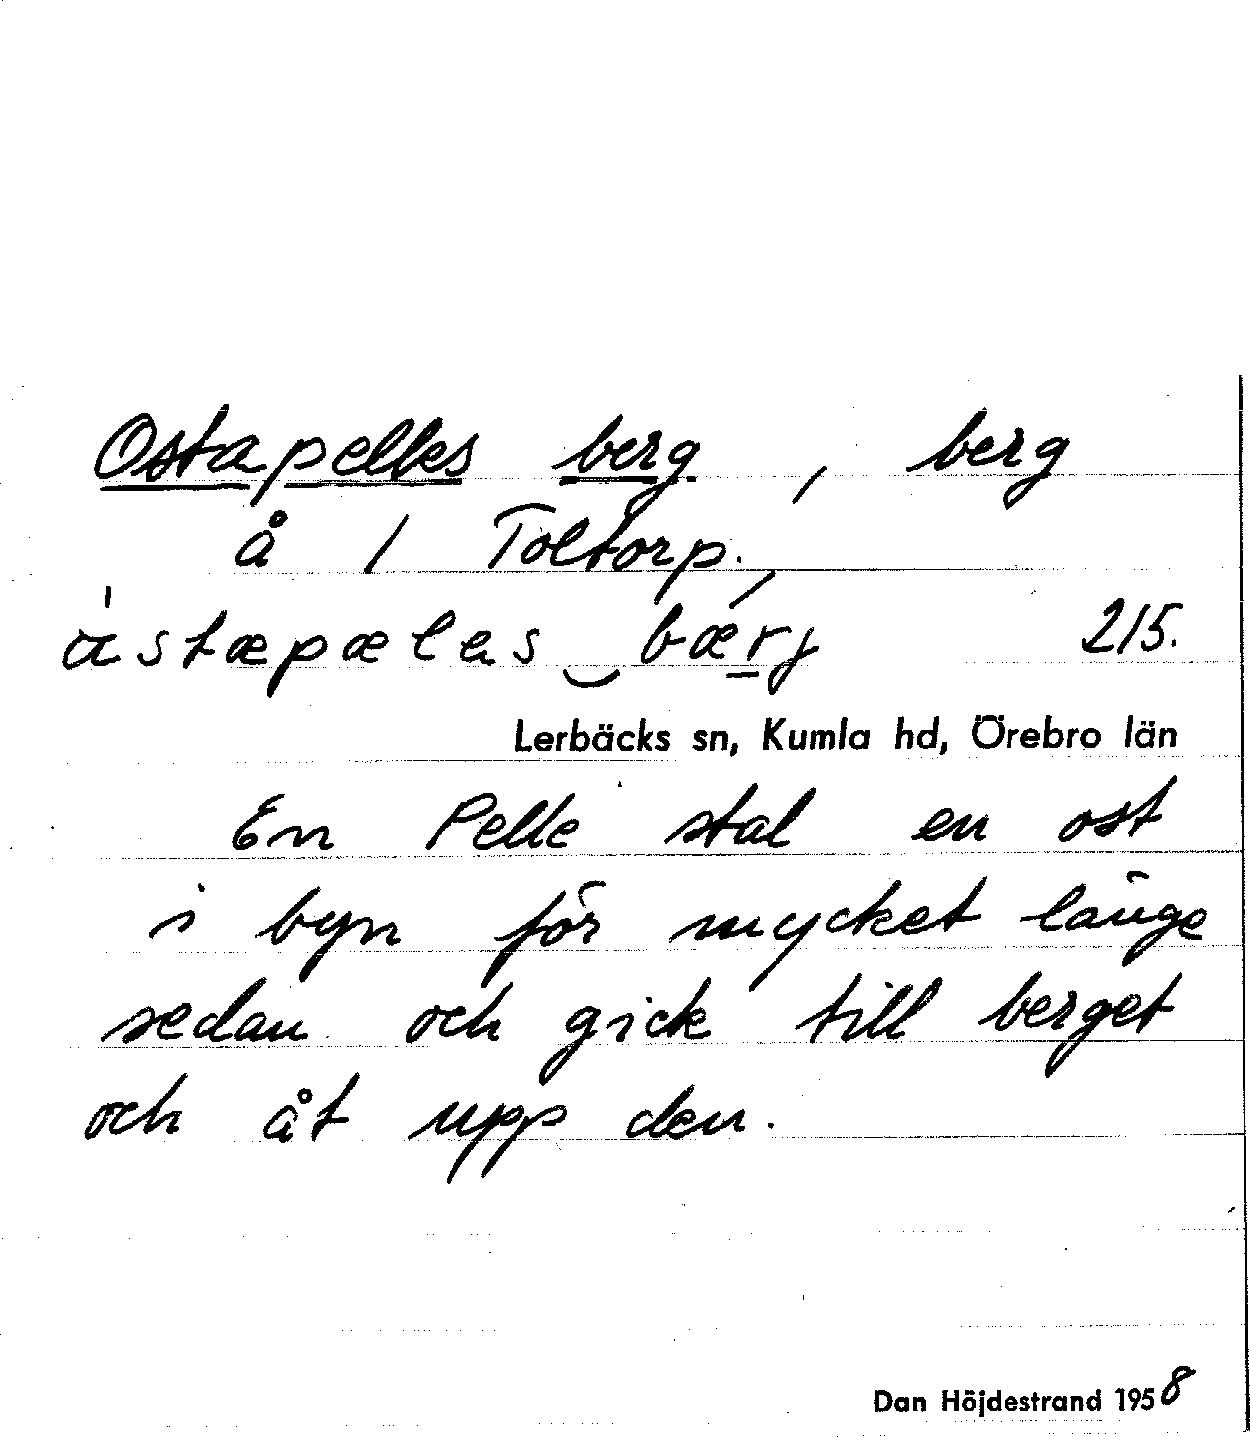 Ostapelles berg, berg
å 1 Toltorp.
ástæpæles bærj 215.
Lerbäcks sn, Kumla hd, Örebro län
En Pelle stal en ost
i byn för mycket länge
sedan och gick till berget
och åt upp den.
Dan Höjdestrand 1958